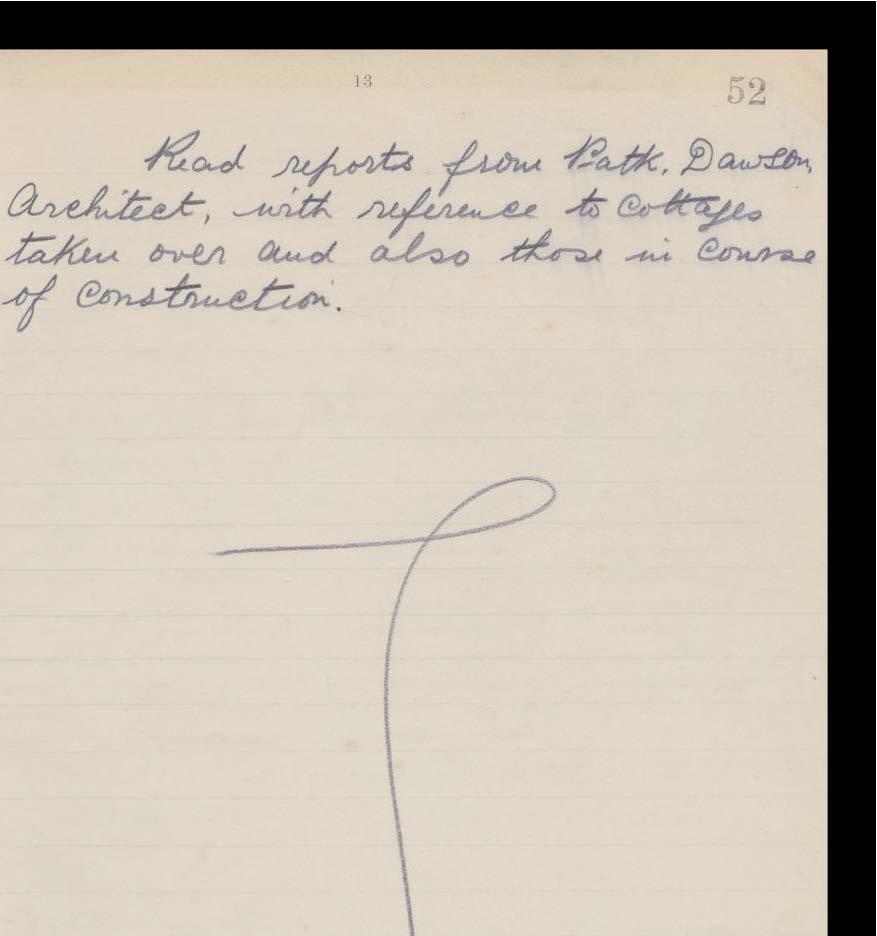 13
52
Read reports from Patk. Dawson,
Architect, with reference to Cottages
taken over and also those in course
of construction.